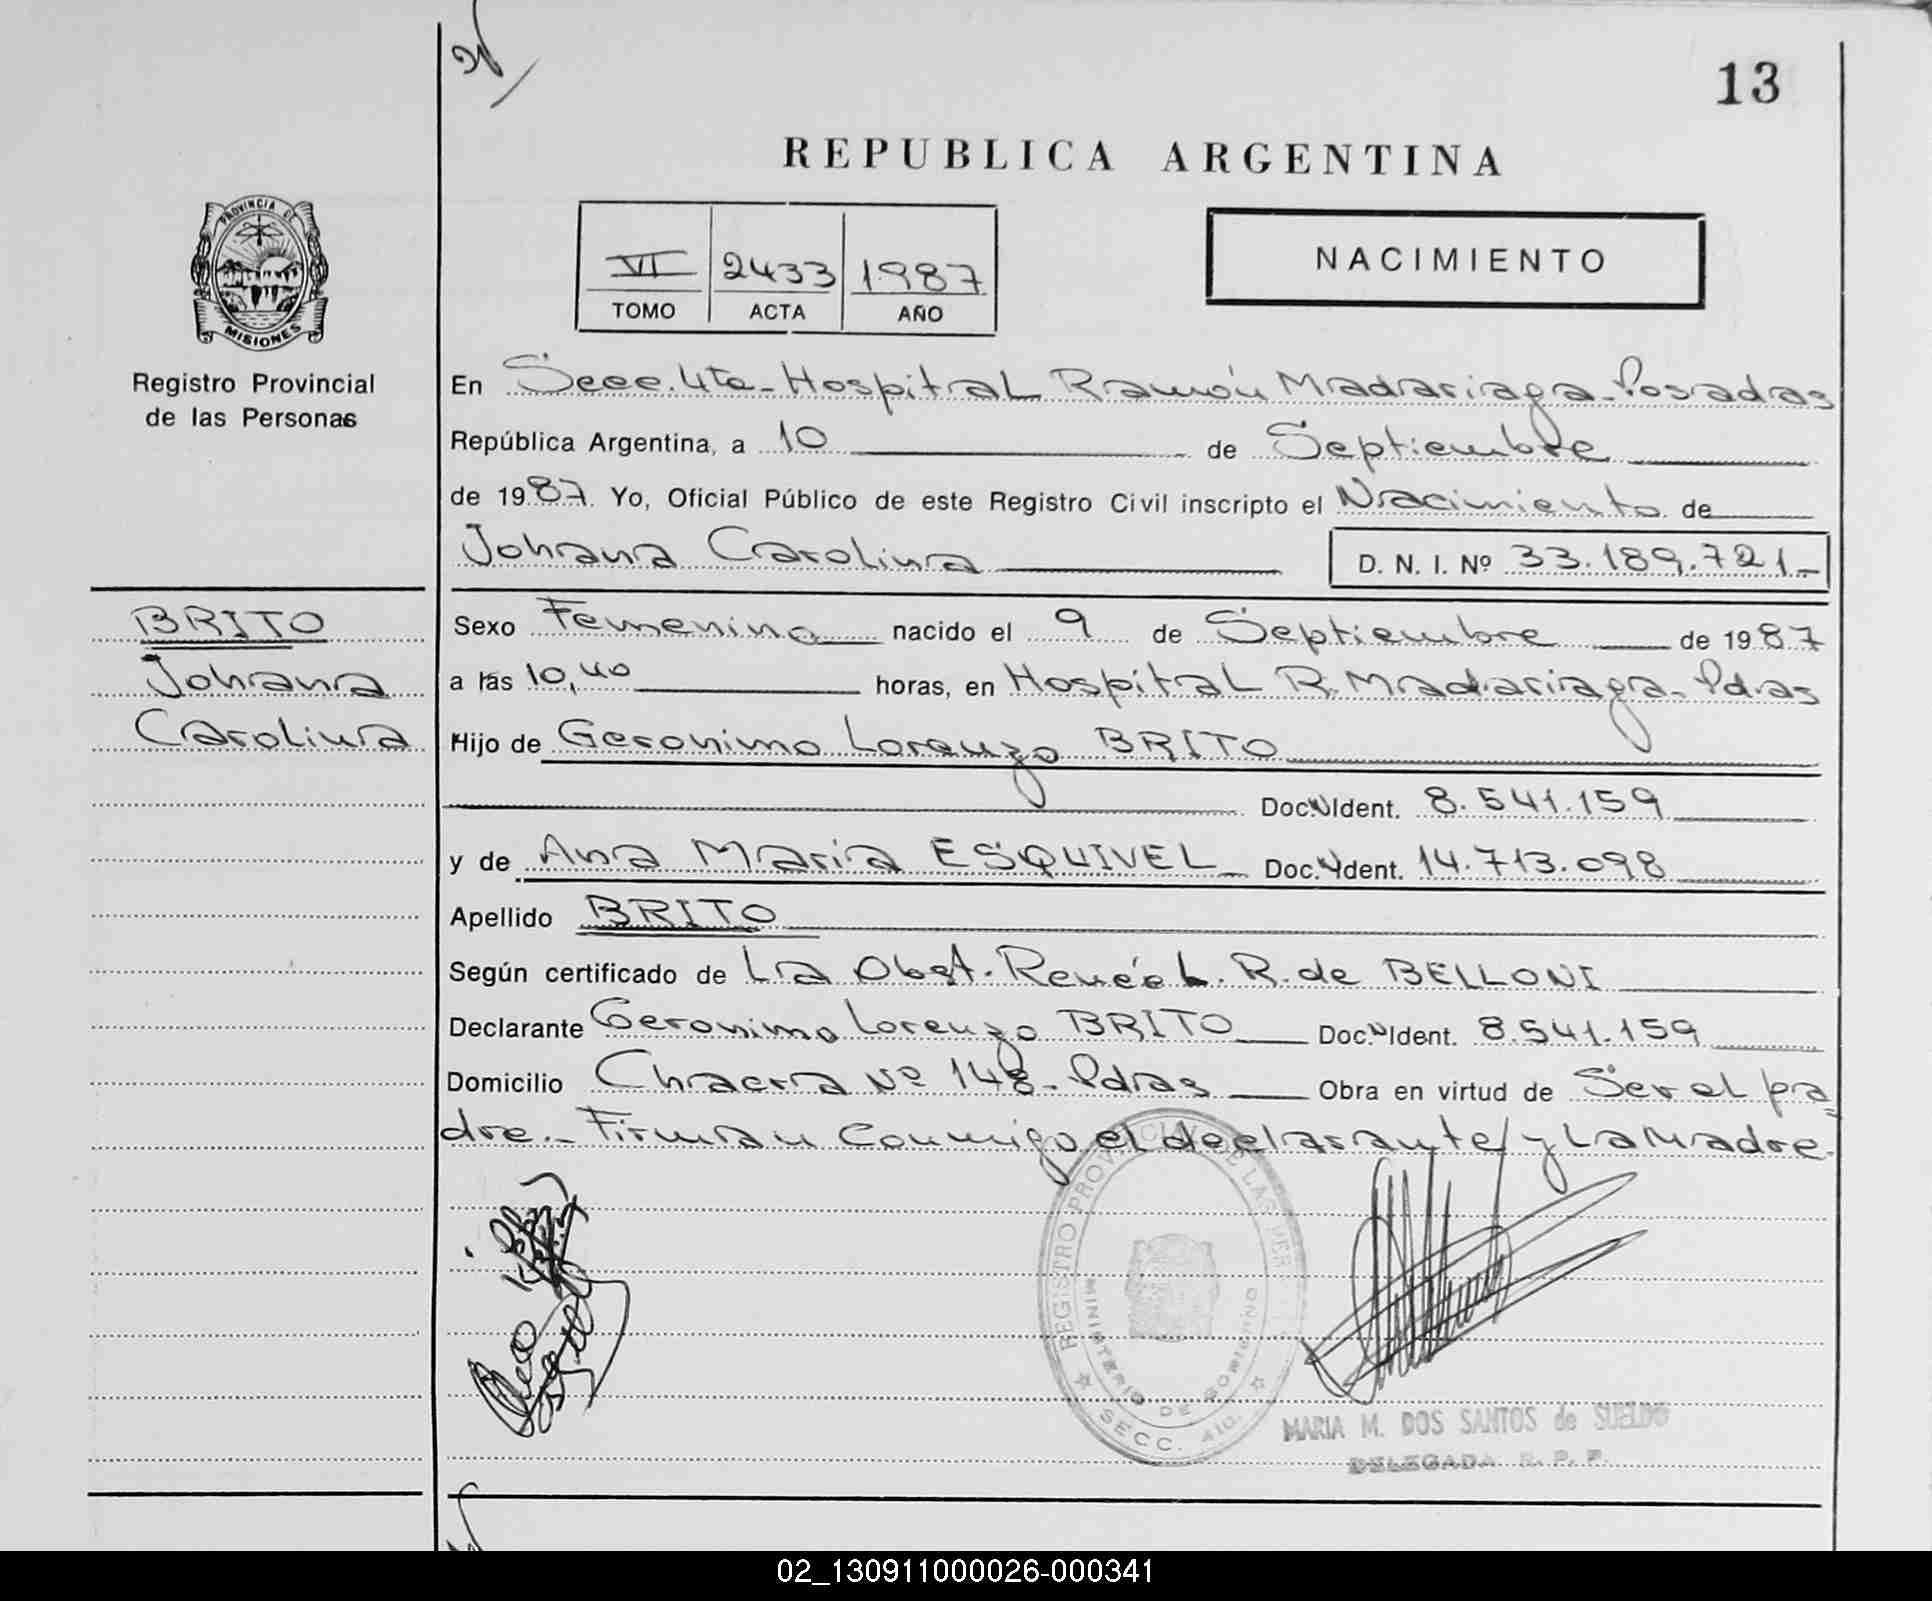 13
REPUBLICA ARGENTINA
PROVINCIA DE
MISIONES
Registro Provincial
de las Personas
VI 2433 1987
TOMO ACTA AÑO
NACIMIENTO
En Secc. 4ta - Hospital Ramón Madariaga - Posadas
República Argentina, a 10 de Septiembre
de 1987. Yo, Oficial Público de este Registro Civil inscripto el Nacimiento de
Johana Carolina D. N. I. Nº 33.189.721-
BRITO
Johana
Carolina
Sexo Femenino nacido el 9 de Septiembre de 1987
a las 10,40 horas, en Hospital R. Madariaga - Pdas
Hijo de Geronimo Lorenzo BRITO
Doc. Ident. 8.541.159
y de Ana Maria ESQUIVEL Doc. Ident. 14.713.098
Apellido BRITO
Según certificado de La Obst. Renée L. R. de BELLONI
Declarante Geronimo Lorenzo BRITO Doc. Ident. 8.541.159
Domicilio Chacra Nº 148 - Pdas Obra en virtud de Ser el pa-
dre.- Firman Conmigo el declarante y La Madre.
REGISTRO PROVINCIAL DE LAS PER
MINISTERIO DE GOBIERNO
SECC. 4ta.
MARIA M. DOS SANTOS de SUELDO
DELEGADA R. P. P.
02_130911000026-000341